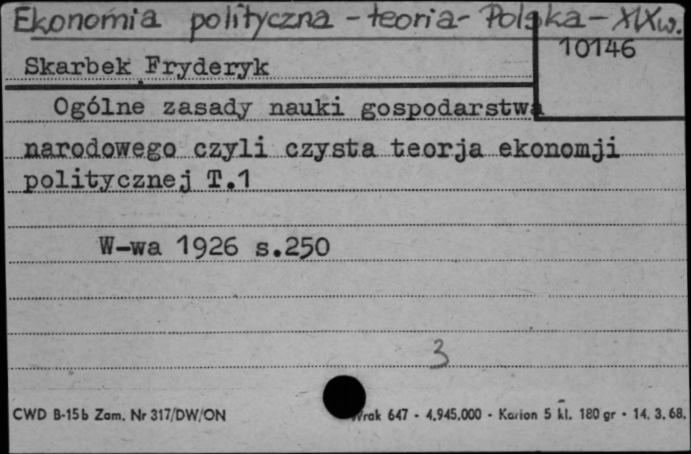 Ekonomia polityczna - teoria - Polska - XIX w.
10146
Skarbek Fryderyk
Ogólne zasady nauki gospodarstwa
narodowego czyli czysta teorja ekonomji
politycznej T.1
W-wa 1926 s.250
3
CWD B-15b Zam. Nr 317/DW/ON rak 647 - 4.945.000 - Karton 5 kl. 180 gr - 14. 3. 68.